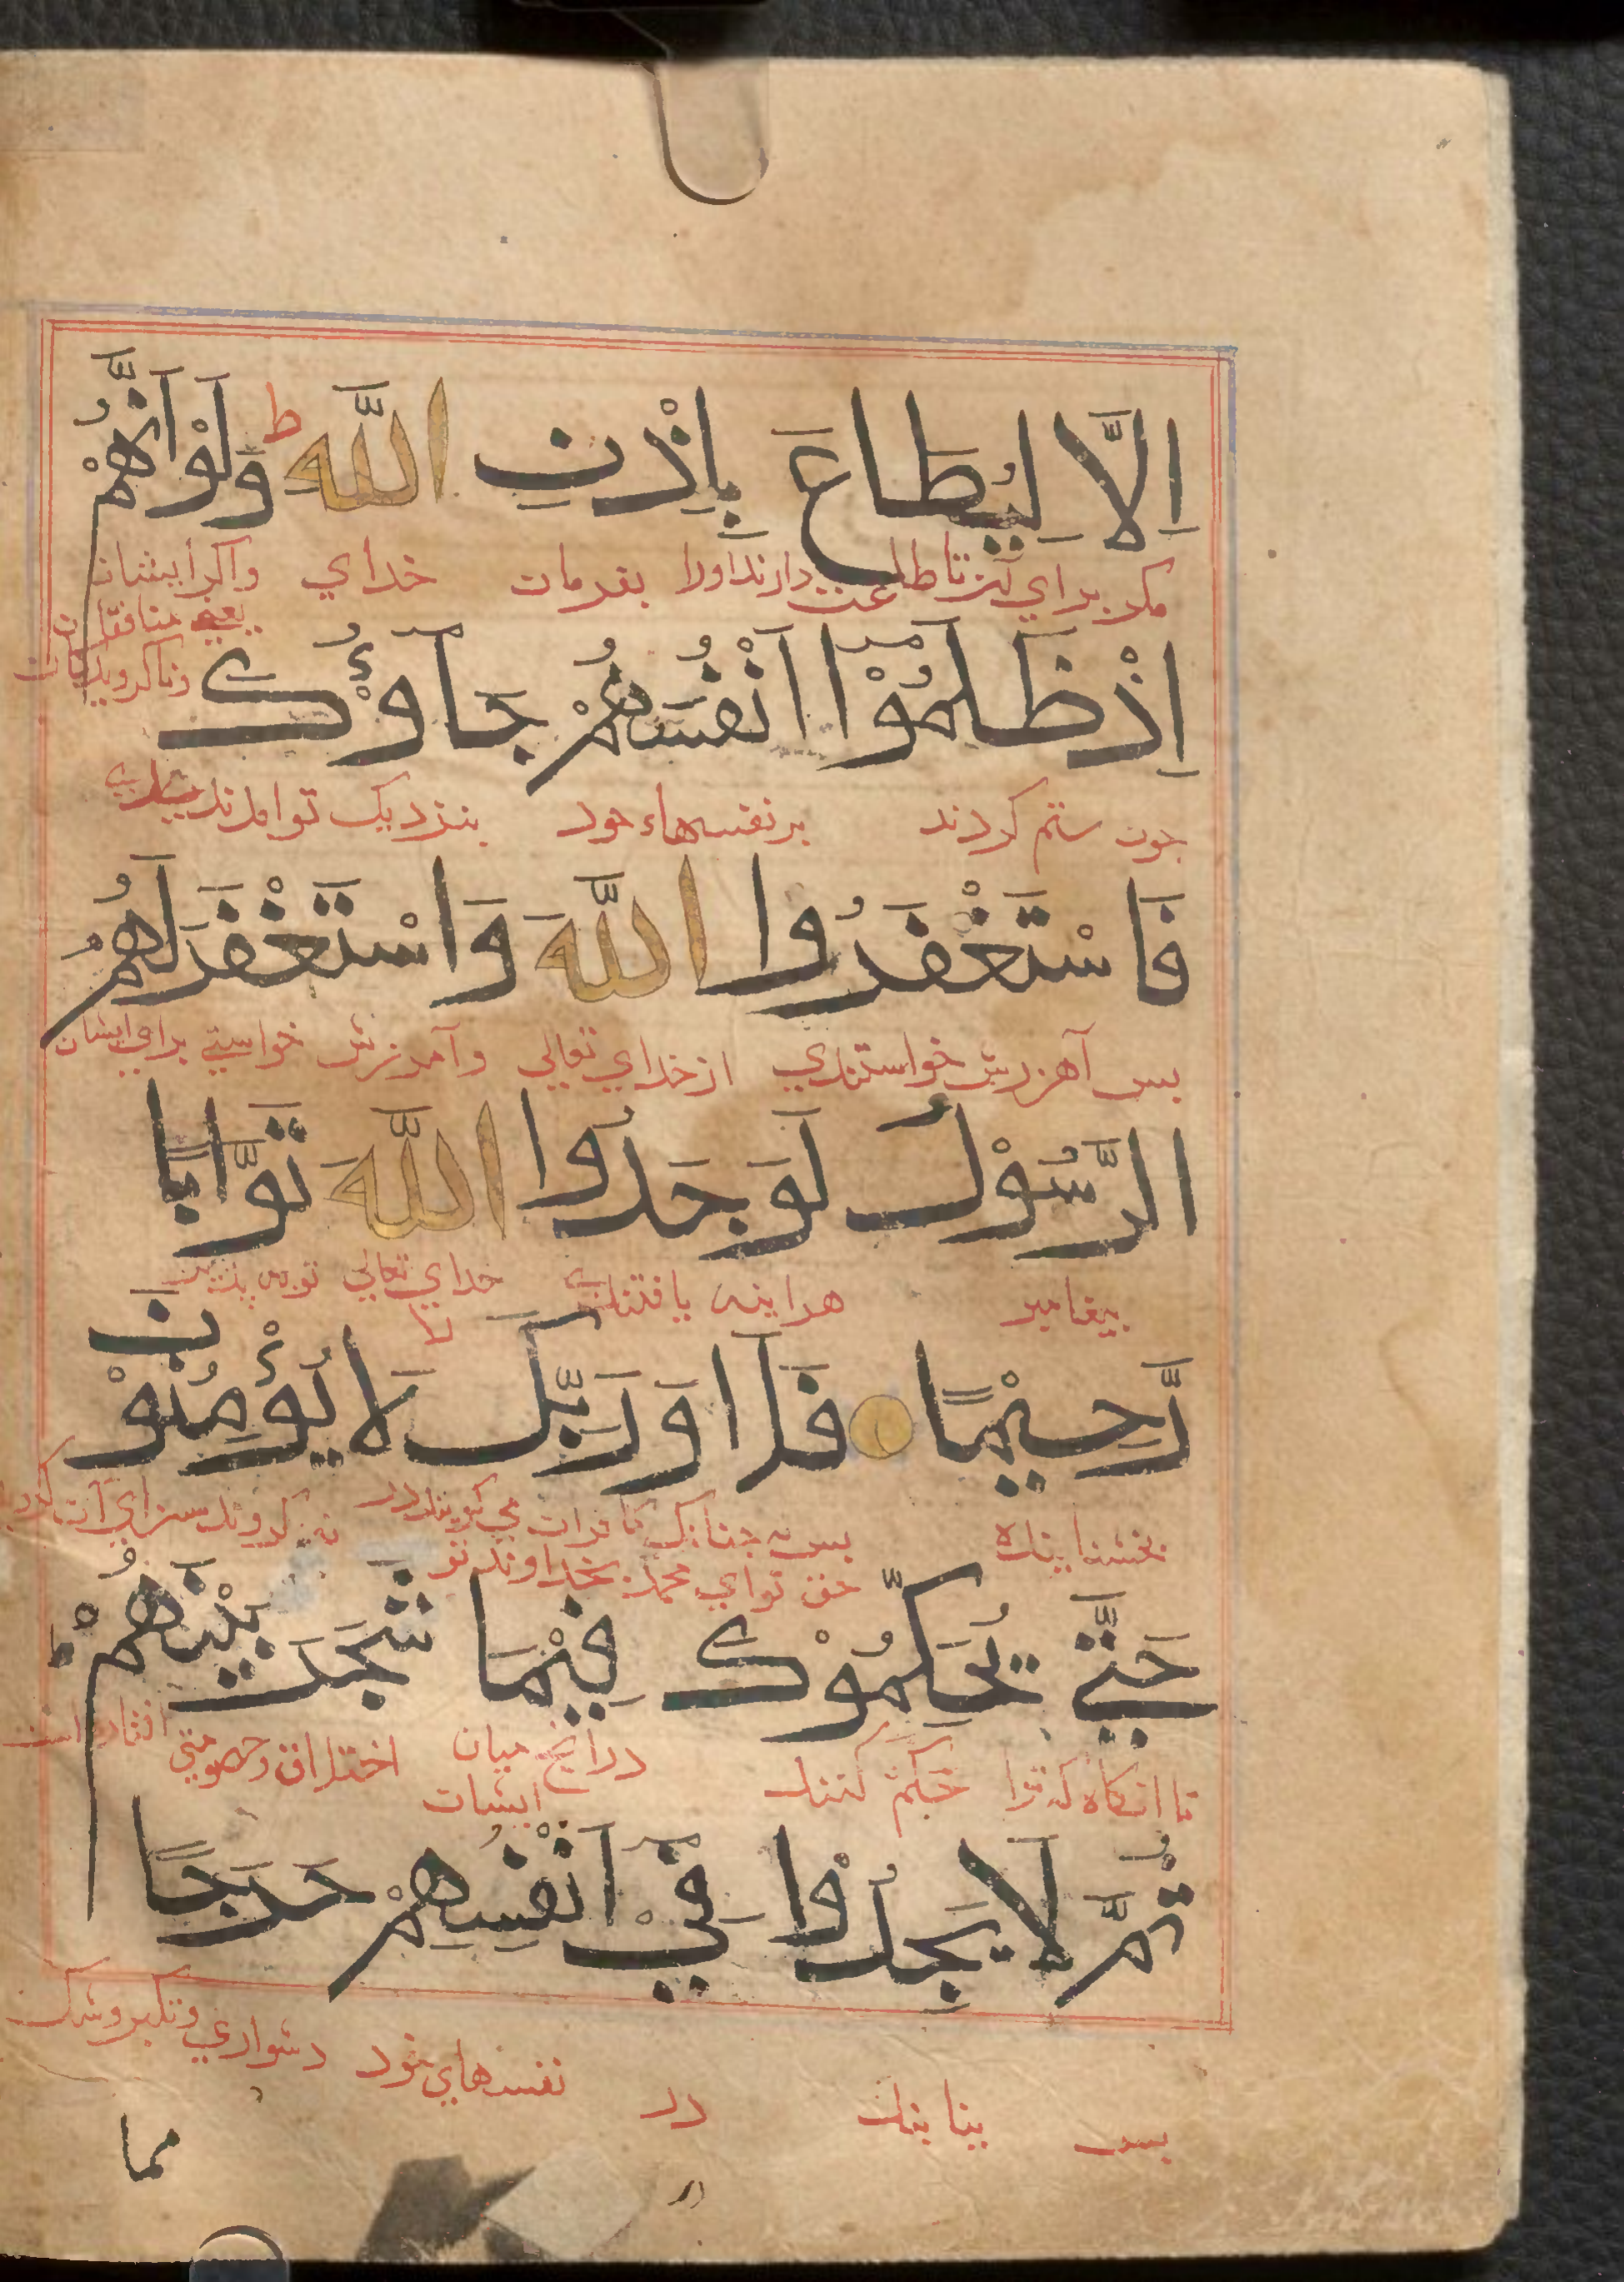 اِلَّا لِيُطَاعَ بِاِذْنِ اللّٰهِ ط وَلَوْ اَنَّهُمْ
مكر براي آنك تا طاعت دارند اورا بفرمان خداي واكر ايشان
يعني منافقان
اِذْ ظَلَمُوْا اَنْفُسَهُمْ جَاؤُكَ
جون ستم كردند بر نفسهاء خود بنزديك تو امدندي
فَاسْتَغْفَرُوا اللّٰهَ وَاسْتَغْفَرَ لَهُمُ
بس آمرزش خواستندي از خداي تعالي وآمرزش خواستي براي ايشان
الرَّسُوْلُ لَوَجَدُوا اللّٰهَ تَوَّابًا
بيغامبر هراينه يافتندي خداي تعالي توبه پذير
رَّحِيْمًا فَلَا وَرَبِّكَ لَا يُؤْمِنُوْنَ
بخشاينده بس نه جنانك كافران مي كويند نه كروند سزاي آن
حق تو اي محمد بخداوند تو
حَتّٰي يُحَكِّمُوْكَ فِيْمَا شَجَرَ بَيْنَهُمْ
تا انكاه كه ترا حكم كنند درانج ميان اختلاف وخصومتي افتاده است
ايشان
ثُمَّ لَا يَجِدُوْا فِيْ اَنْفُسِهِمْ حَرَجًا
بس نيابند در نفسهاي خود دشواري وتكبر وشك
مما